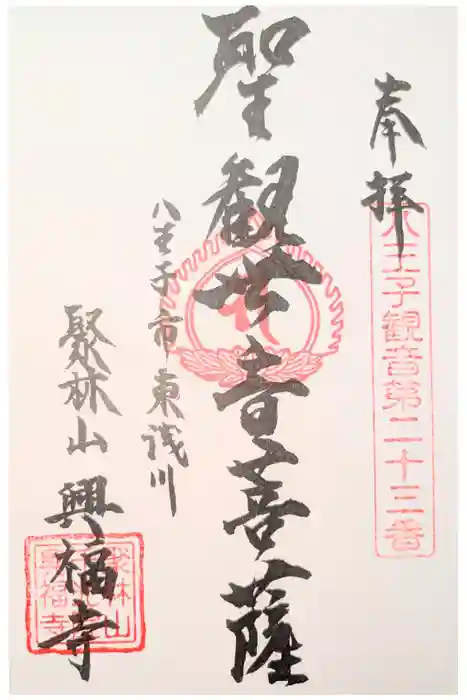 奉拝
八王子観音第二十三番
聖観世音菩薩
八王子市東浅川
聚林山 興福寺
聚林山
興福寺